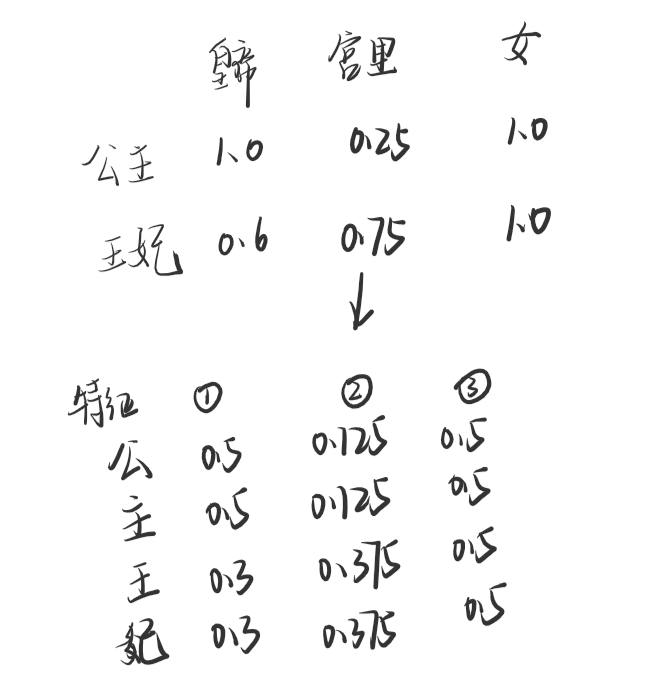 皇帝 宫里 女
公主 1.0 0.25 1.0
王妃 0.6 0.75 1.0
↓
特征 ① ② ③
公 0.5 0.125 0.5
主 0.5 0.125 0.5
王 0.3 0.375 0.5
妃 0.3 0.375 0.5